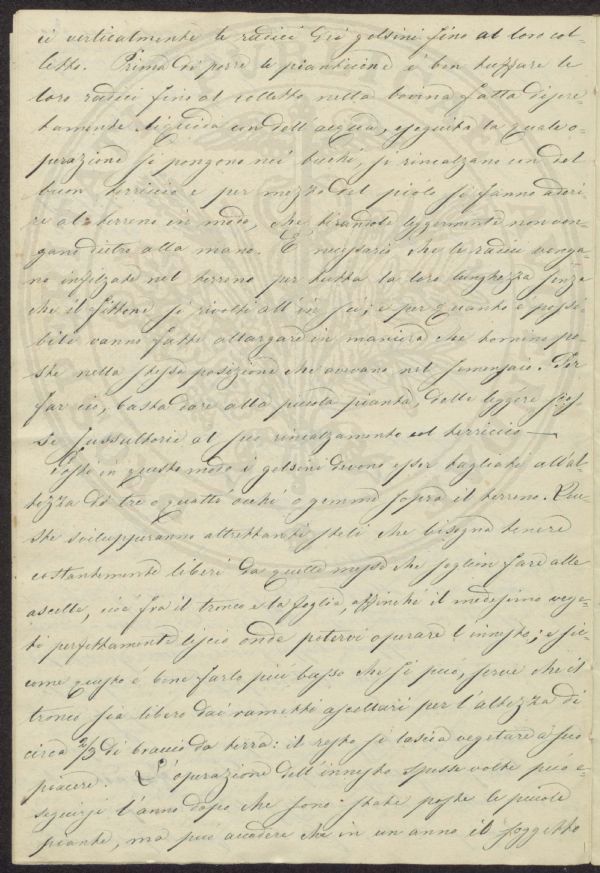 ci verticalmente le radici dei gelsini fino al loro col-
letto. Prima di porre le pianticine è ben tuffare le
loro radici fino al colletto nella bovina fatta disere-
tamente liquida con dell'acqua, eseguita la quale o-
perazione si pongono nei buchi, si rincalzano con del
buon terriccio e per mezzo del piolo si fanno aderi-
re al terreno in modo, che tirandole leggermente non ven-
gano dietro alla mano. È necessario che le radici venga-
no infilzate nel terreno per tutta la loro lunghezza senza
che il fittone si rivolti all'in su; e per quanto è possi-
bile vanno fatte allargare in maniera che tornino po-
ste nella stessa posizione che avevano nel semenzaio. Per
far ciò, basta dare alla piccola pianta, delle leggere scos
se sussultorie al suo rincalzamento col terriccio —
Posti in questo modo i gelsini devono esser tagliati all'al-
tezza di tre o quattr'occhi o gemme sopra il terreno. Que-
ste svilupperanno altrettanti steli che bisogna tenere
costantemente liberi da quelle messe che soglion fare alle
ascelle, cioè fra il tronco e la foglia, affinché il medesimo vege-
ti perfettamente liscio onde potervi operare l'innesto; e sic-
come questo è bene farlo più basso che si può, serve che il
tronco sia libero dai rametti ascellari per l'altezza di
circa 2/3 di braccio da terra: il resto si lascia vegetare a suo
piacere. L'operazione dell'innesto spesse volte può e-
seguirsi l'anno dopo che sono state poste le piccole
piante, ma può accadere che in un anno il soggetto